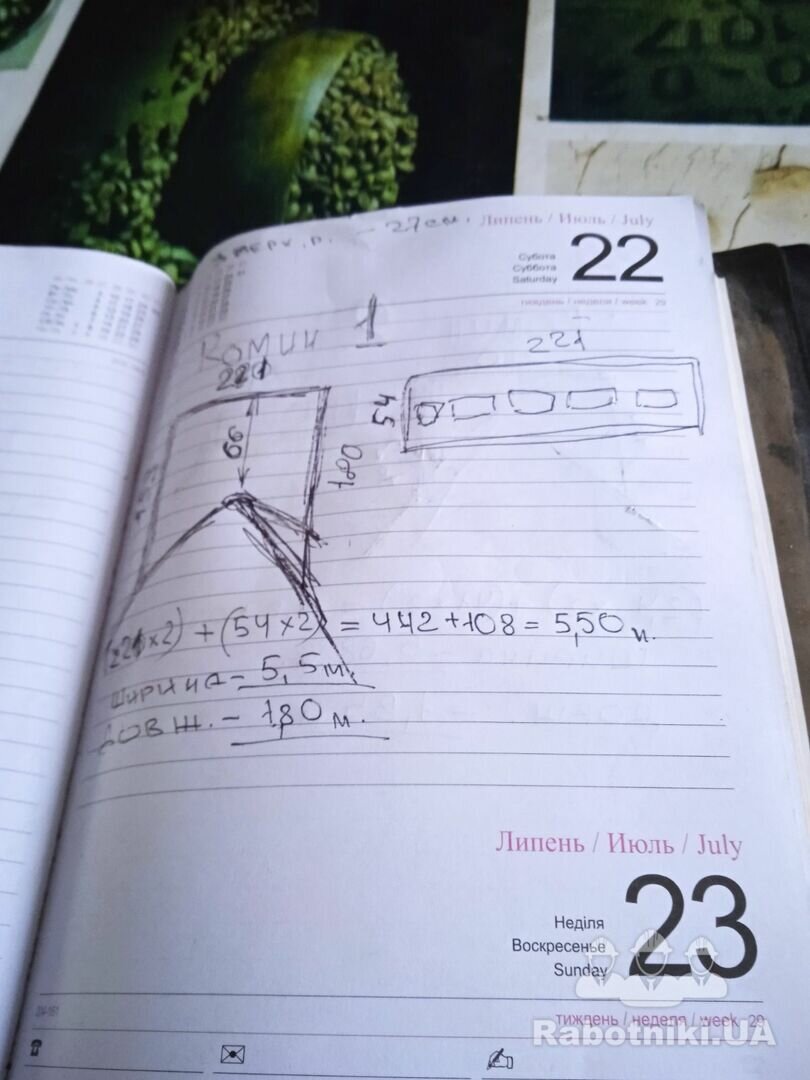 - 27см. Липень / Июль / July
Субота
Суббота
Saturday
22
тиждень / неделя / week 29
Комин 1
221
66
180
221
54
(221x2) + (54x2) = 442+108 = 5,50м.
Ширина - 5,5м.
Довж. - 1,80м.
Липень / Июль / July
Неділя
Воскресенье
Sunday
23
тиждень / неделя / week 29
Rabotniki.UA